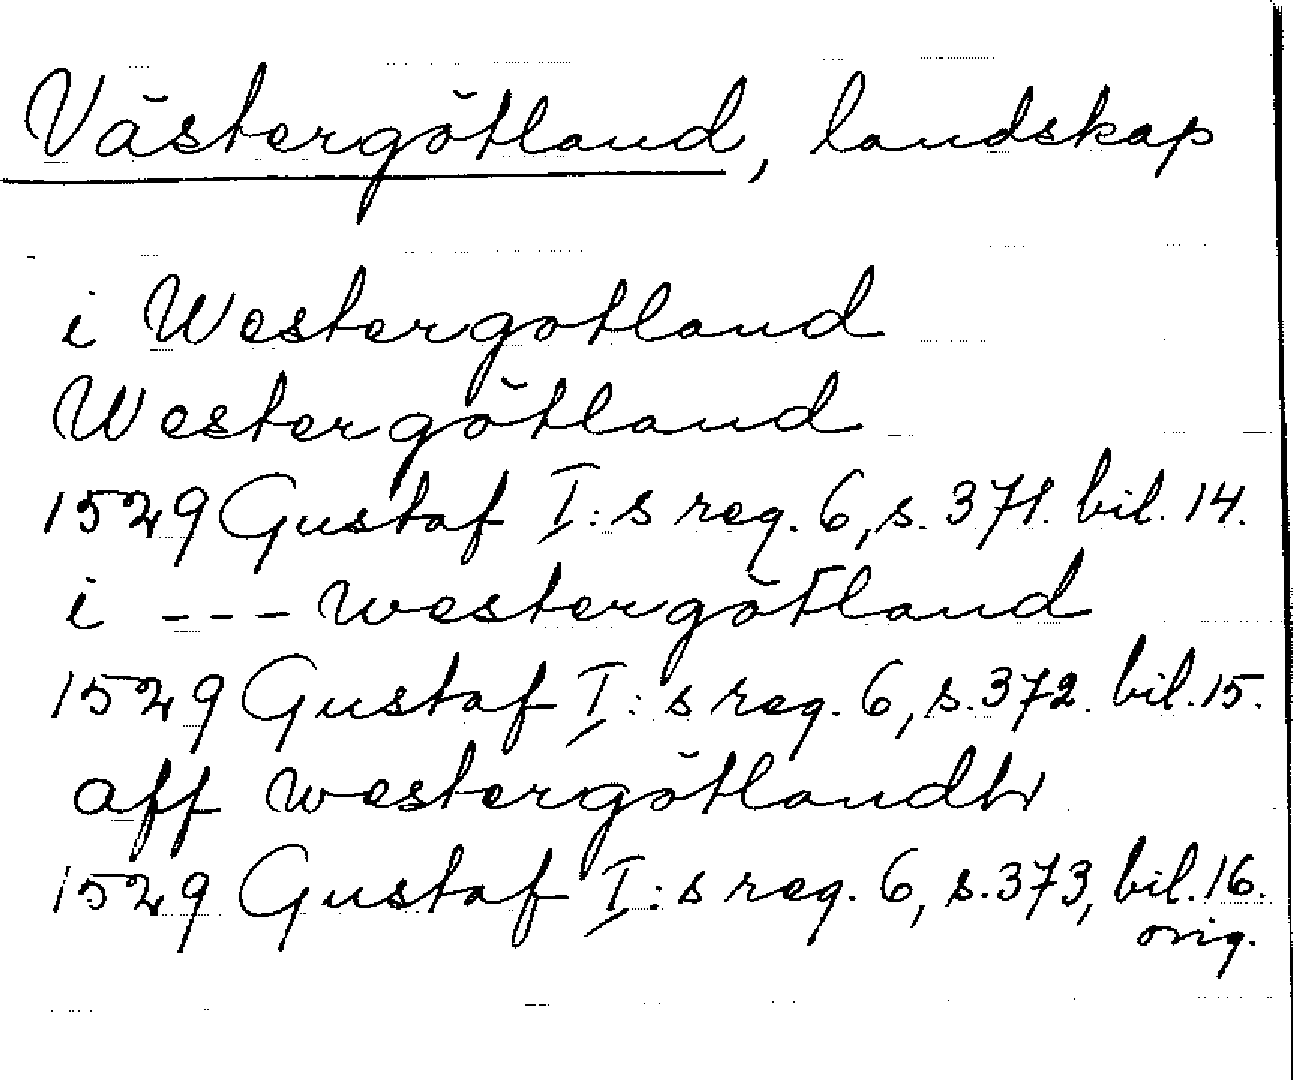 Västergötland, landskap
i Westergotland
Westergötland
1529 Gustaf I:s reg. 6, s. 371. bil. 14.
i --- westergötland
1529 Gustaf I:s reg. 6, s. 372. bil. 15.
aff westergötlandh
1529 Gustaf I:s reg. 6, s. 373, bil. 16.
orig.